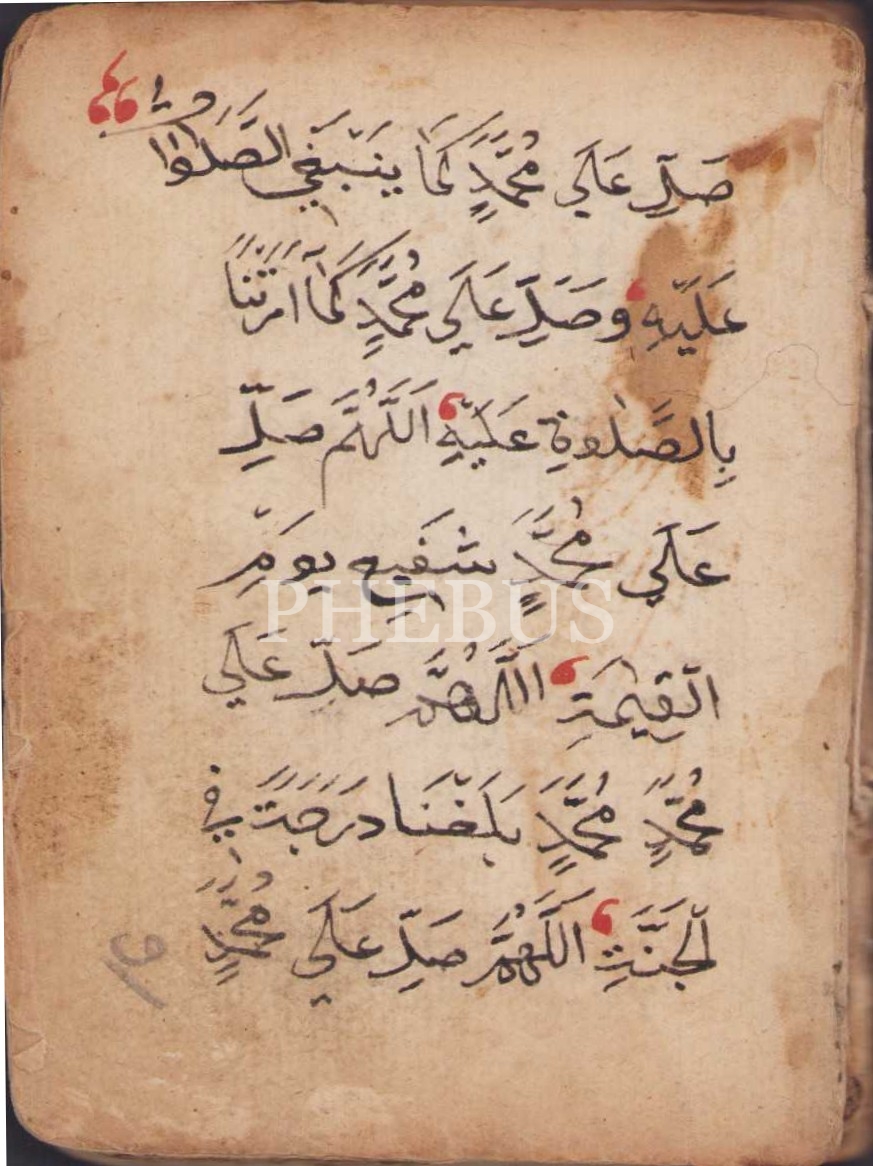 صَلِّ عَلَي مُحَمَّدٍ كَمَا يَنبَغِي الصَّلٰواتُ
عَلَيْهِ وَصَلِّ عَلَي مُحَمَّدٍ كَمَا اَمَرْتَنَا
بِالصَّلٰوةِ عَلَيْهِ اَللَّهُمَّ صَلِّ
عَلَي مُحَمَّدٍ شَفِيعِ يَوْمِ
PHEBUS
الْقِيٰمَةِ اَللَّهُمَّ صَلِّ عَلَي
مُحَمَّدٍ مُحَمَّدٍ بَلِّغْنَا دَرَجَةً فِي
الْجَنَّةِ اَللَّهُمَّ صَلِّ عَلَي مُحَمَّدٍ